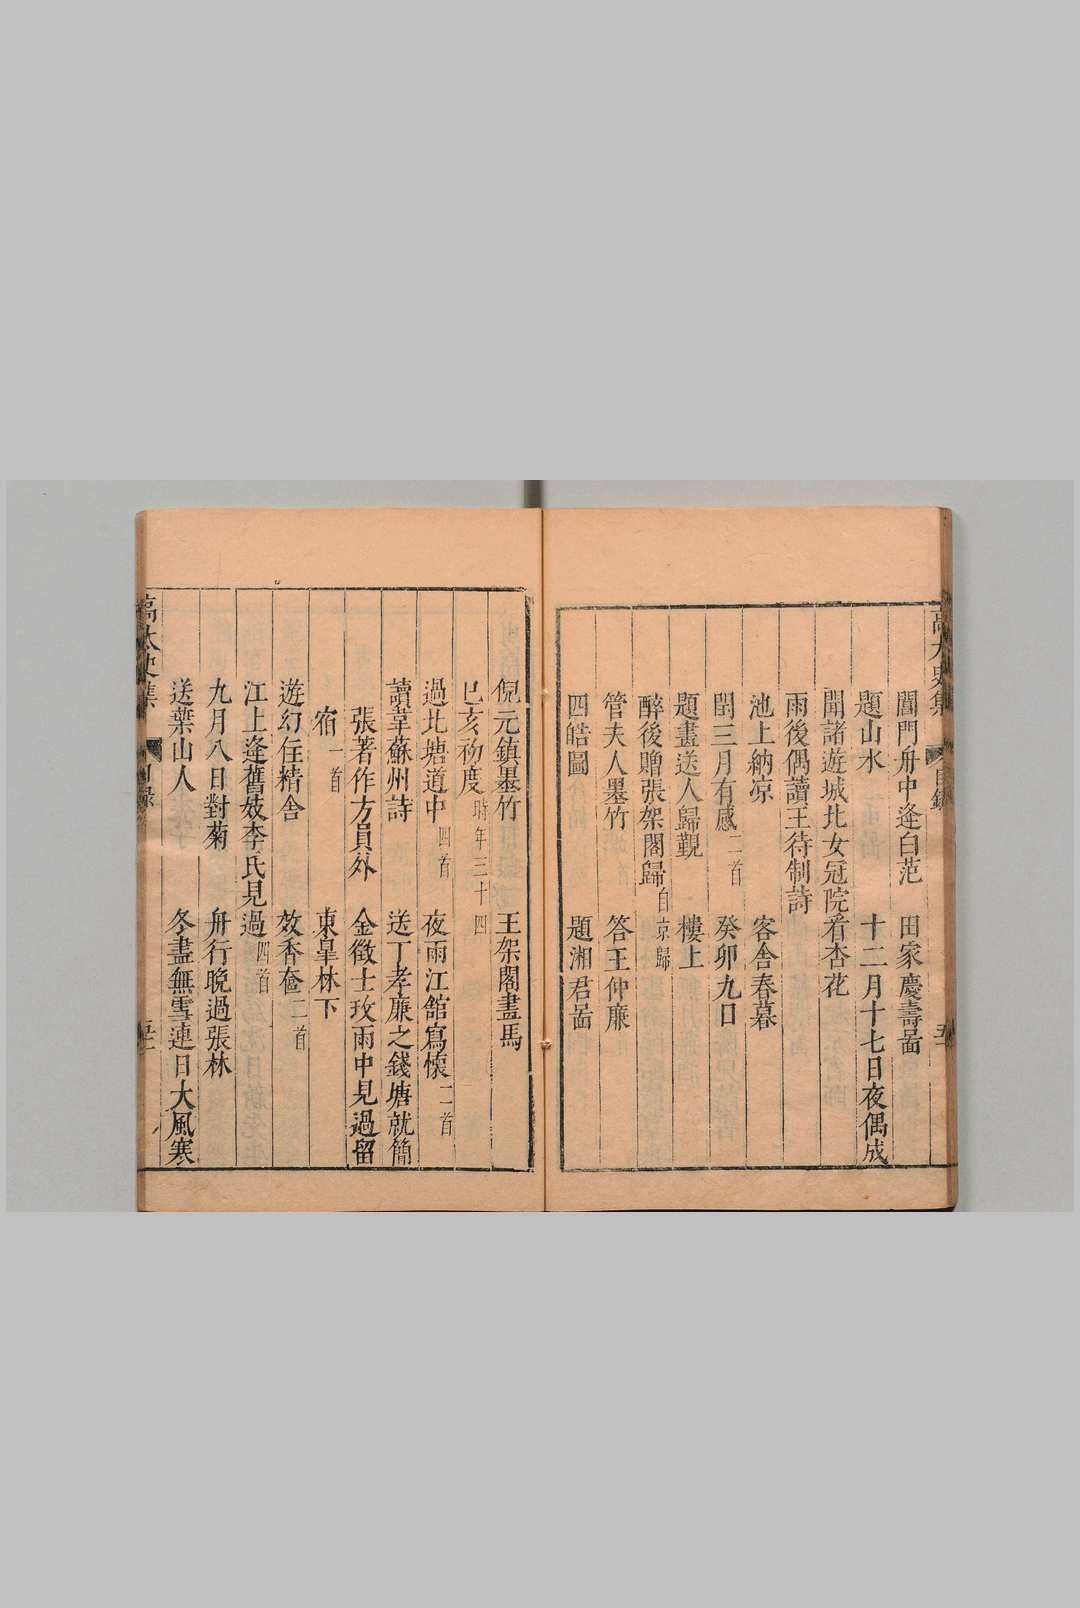 高太史集 目錄
閶門舟中逢白范 田家慶壽啚
題山水 十二月十七日夜偶成
聞諸遊城北女冠院看杏花
雨後偶讀王待制詩
池上納凉 客舍春暮
閏三月有感二首 癸卯九日
題畫送人歸觀 樓上
醉後贈張架閣歸自京歸
管夫人墨竹 答王仲廉
四皓圖 題湘君啚
倪元鎮墨竹 王架閣畫馬
己亥初度時年三十四
過北塘道中四首 夜雨江館寫懷二首
讀韋蘇州詩 送丁孝廉之錢塘就簡
張著作方員外 金徵士玫雨中見過留
宿一首 東皐林下
遊幻住精舍 效香奩二首
江上逢舊妓李氏見過四首
九月八日對菊 舟行晚過張林
送葉山人 冬盡無雪連日大風寒
高太史集 目錄